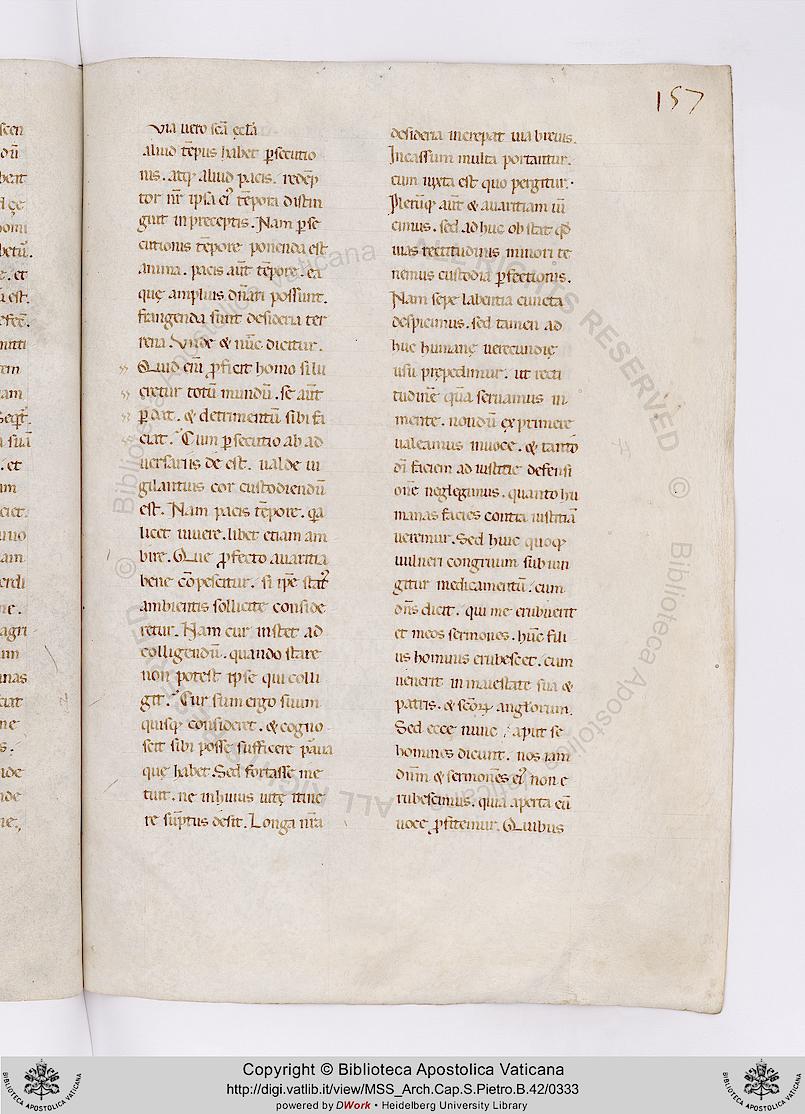 157
Via uero scā ęcła
aliud tēpus habet p̱secutio
nis. atq; aliud pacis. redēp
tor nr̄ ipsa ei' tēpora distin
guit in preceptis. Nam p̱se
cutionis tēpore ponenda est
anima. pacis aūt tēpore. ea
quę amplius dn̄ari possunt.
frangenda sunt desideria ter
rena. Vnde & nūc dicitur.
Quid eni̅ ꝓficit homo si lu
cretur totū mundū. se aūt
p̱dat. & detrimentū sibi fa
ciat. Cum p̱secutio ab ad
uersariis de est. ualde ui
gilantius cor custodiendū
est. Nam pacis tēpore. q̄a
licet uiuere. libet etiam am
bire. Que ꝓfecto auaritia
bene cōpescitur. si ip̄e stat'
ambientis sollicite conside
retur. Nam cur instet ad
colligendū. quando stare
non potest ipse qui colli
git. Cur sum ergo suum
quisq; consideret. & cogno
scit sibi posse sufficere paua
que habet. Sed fortasse me
tuit. ne in huius uitę itine
re sūptus desit. Longa nr̄a
desideria increpat uia breuis.
Incassum multa portantur.
cum iuxta est quo pergitur.
Plerūq; aūt & auaritiam uī
cimus. sed ad huc ob stat qd̄
uias rectitudinis minori te
nemus custodia p̱fectionis.
Nam sepe labentia cuncta
despicimus. sed tamen ad
huc humanę uerecundię
usu prępedimur. ut recti
tudinē quā seruamus in
mente. nondū ęxprimere
ualeamus in uoce. & tanto
dī faciem ad iustitie defensi
onē neglegimus. quanto hu
manas facies contra iustitiā
ueremur. Sed huic quoq;
uulneri congruum subiun
gitur medicamentū. cum
dn̄s dicit. qui me erubuerit
et meos sermones. hūc fili
us hominis erubescet. cum
uenerit in maiestate sua &
patris. & scōꝝ anglorum.
Sed ecce nunc aput se
homines dicunt. nos iam
dnm̄ & sermonēs ei' non e
rubescimus. quia aperta eū
uoce ꝓfitemur. Quibus
Copyright © Biblioteca Apostolica Vaticana
http://digi.vatlib.it/view/MSS_Arch.Cap.S.Pietro.B.42/0333
powered by DWork • Heidelberg University Library